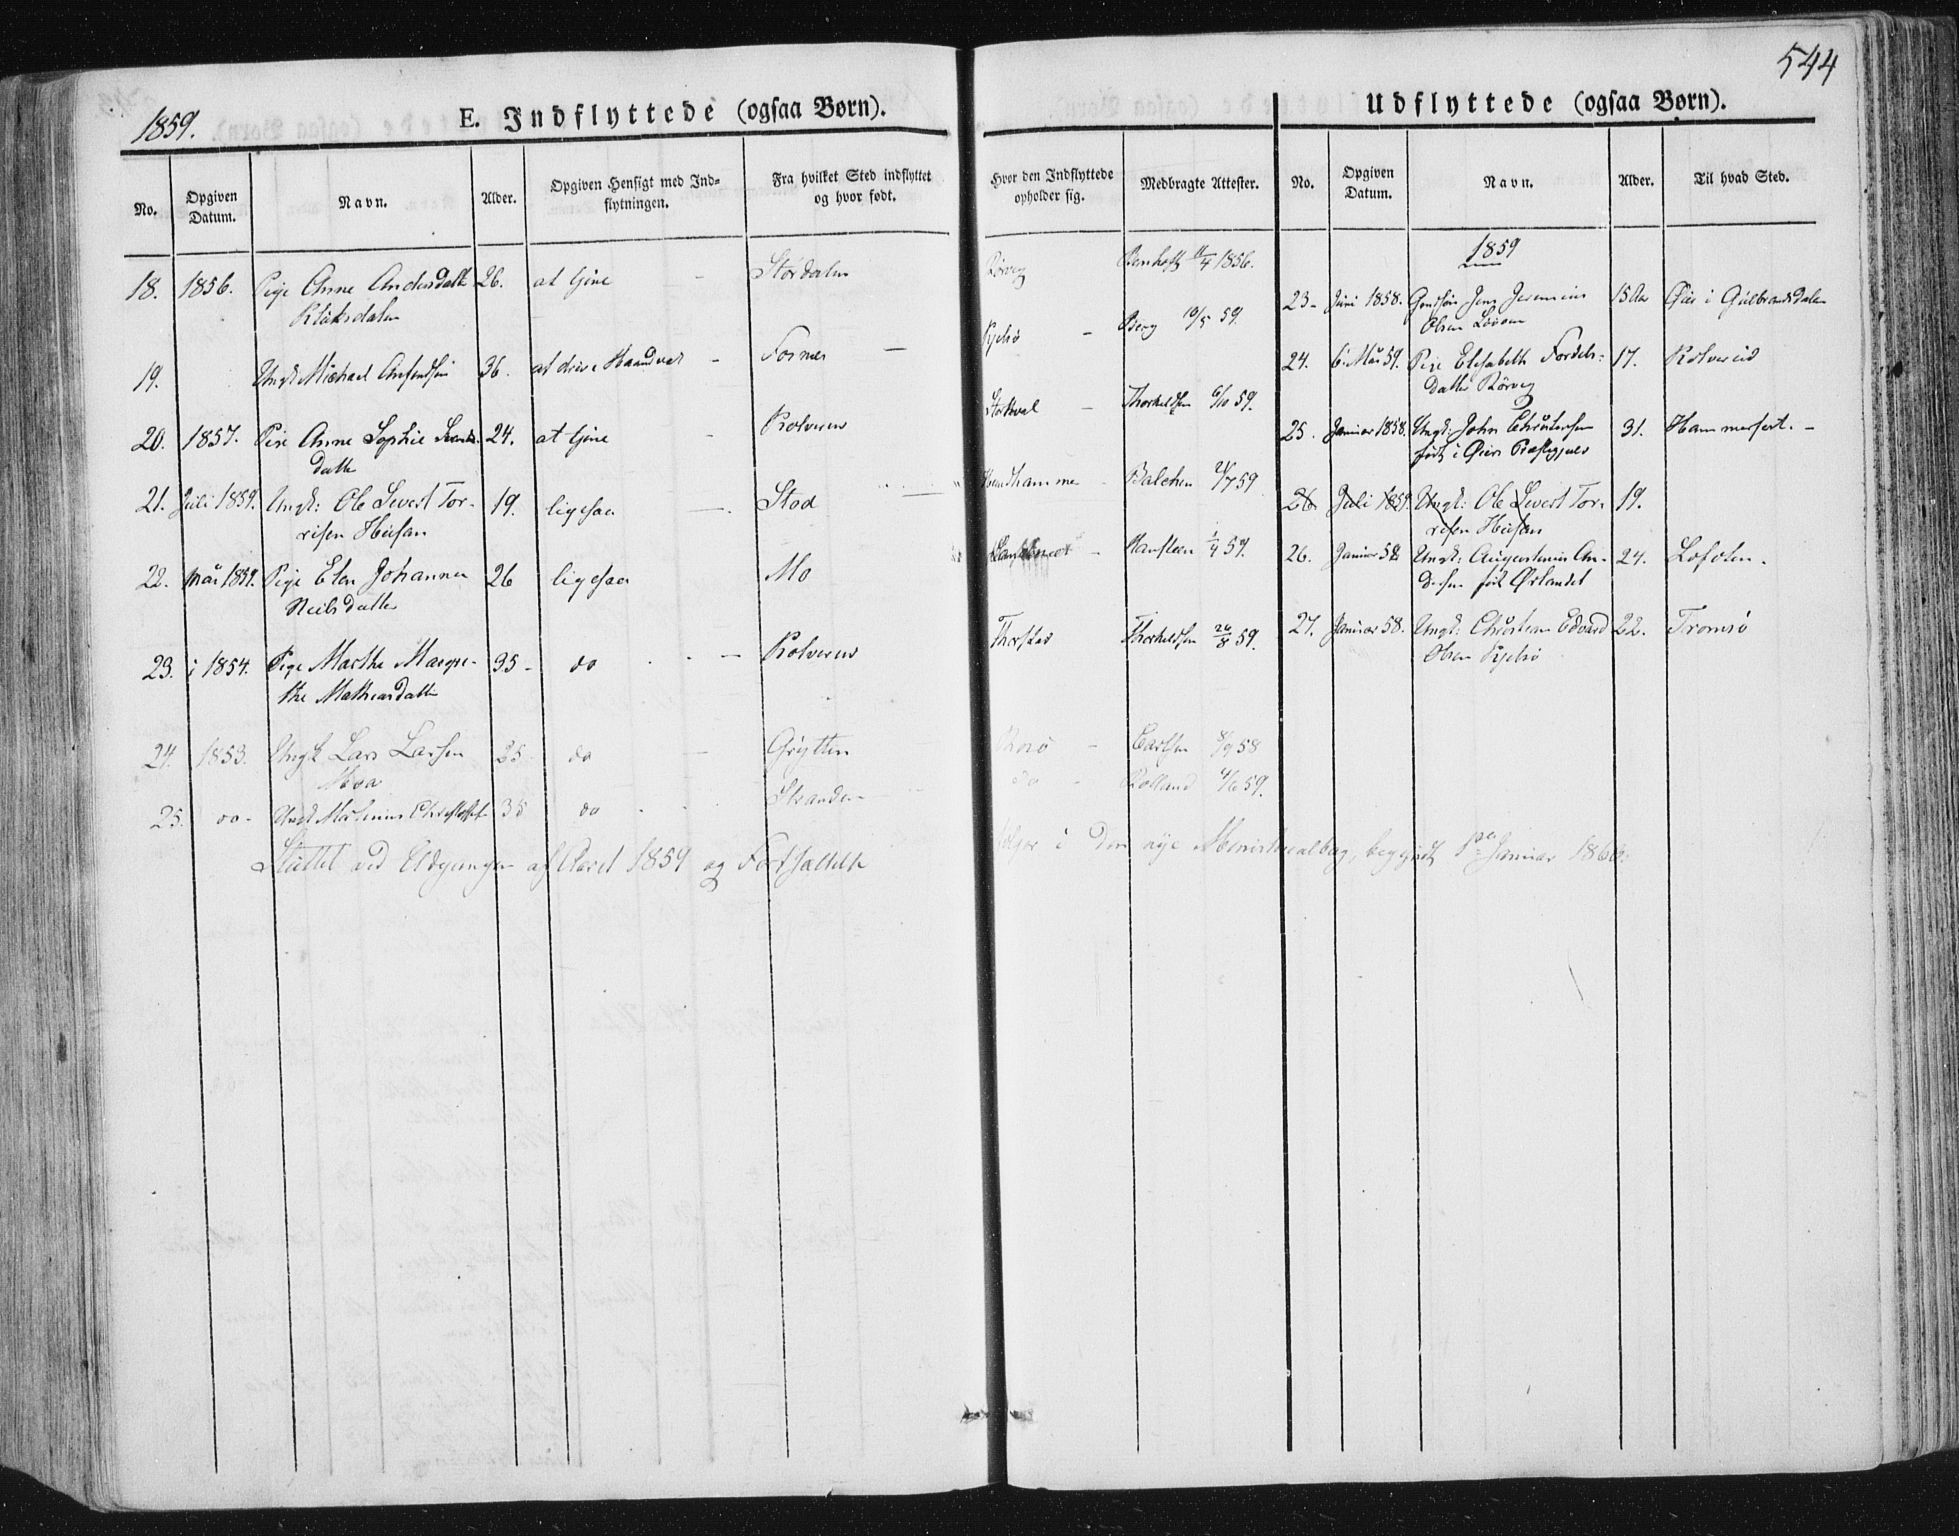 544
1859.
E. Indflyttede (ogsaa Børn).
Udflyttede (ogsaa Børn).
No.
Opgiven Datum.
Navn.
Alder.
Opgiven Hensigt med Indflytningen.
Fra hvilket Sted indflyttet og hvor født.
Hvor den Indflyttede opholder sig.
Medbragte Attester.
No.
Opgiven Datum.
Navn.
Alder.
Til hvad Sted.
18. 1856. Pige Anne Andersdatter 26. at tjene - Stordalen Rørvig 11/4 1856.
Klüksdalen
19. Ungk Michael 36. at drive Haandverk - Fosnes - Berg 10/5 59.
20. 1857. Pige Anne Sophie 24. at tjene - Kolvereid - Thorkeldsen 6/10 59.
datter
21. Juli 1859. Ungk: Ole Sivert Tor- 19. ligesaa - Stod Balchen 59
risen Heüsan
22. Mai 1859. Pige Elen Johanna 26 ligesaa Mo - Hansteen 1/4 59.
Neilsdatter
23. i 1854. Pige Marthe Margre- 35 - do - Kolvereid Thorkeldsen 26/8 59.
the Mathiasdatter
24. 1853. Ungk Lars Larsen 25 do - Grytten - Carlsen 8/9 58
Moa
25. do - Ungk Martinus 35 do Stranden do - Rolland 4/6 59.
Sluttet ved Udgangen af Aaret 1859 og Fortsættelse følger i den nye Ministerialbog, begyndt 1ste Januar 1860.
1859
23 - Juni 1858. Jens Jeremias 15 Aar Øier i Gulbrandsdalen
Olsen
24. 6 Mai 59. Pige Elisabeth Fordels- 17. Kolvereid
datter Rørvig
25. Januar 1858. Ungk: John Christensen 31. Hammerfest. -
født i Øiers Præstegjeld
26 Juli 1859. Ungk: Ole Sivert Tor- 19.
risen Heüsan
26. Januar 58 Ungk: Augustinus An- 24. Lofoten.
dersen født Ørlandet
27. Januar 58. Ungk: Christian Edvard 22. Tromsø
Olsen